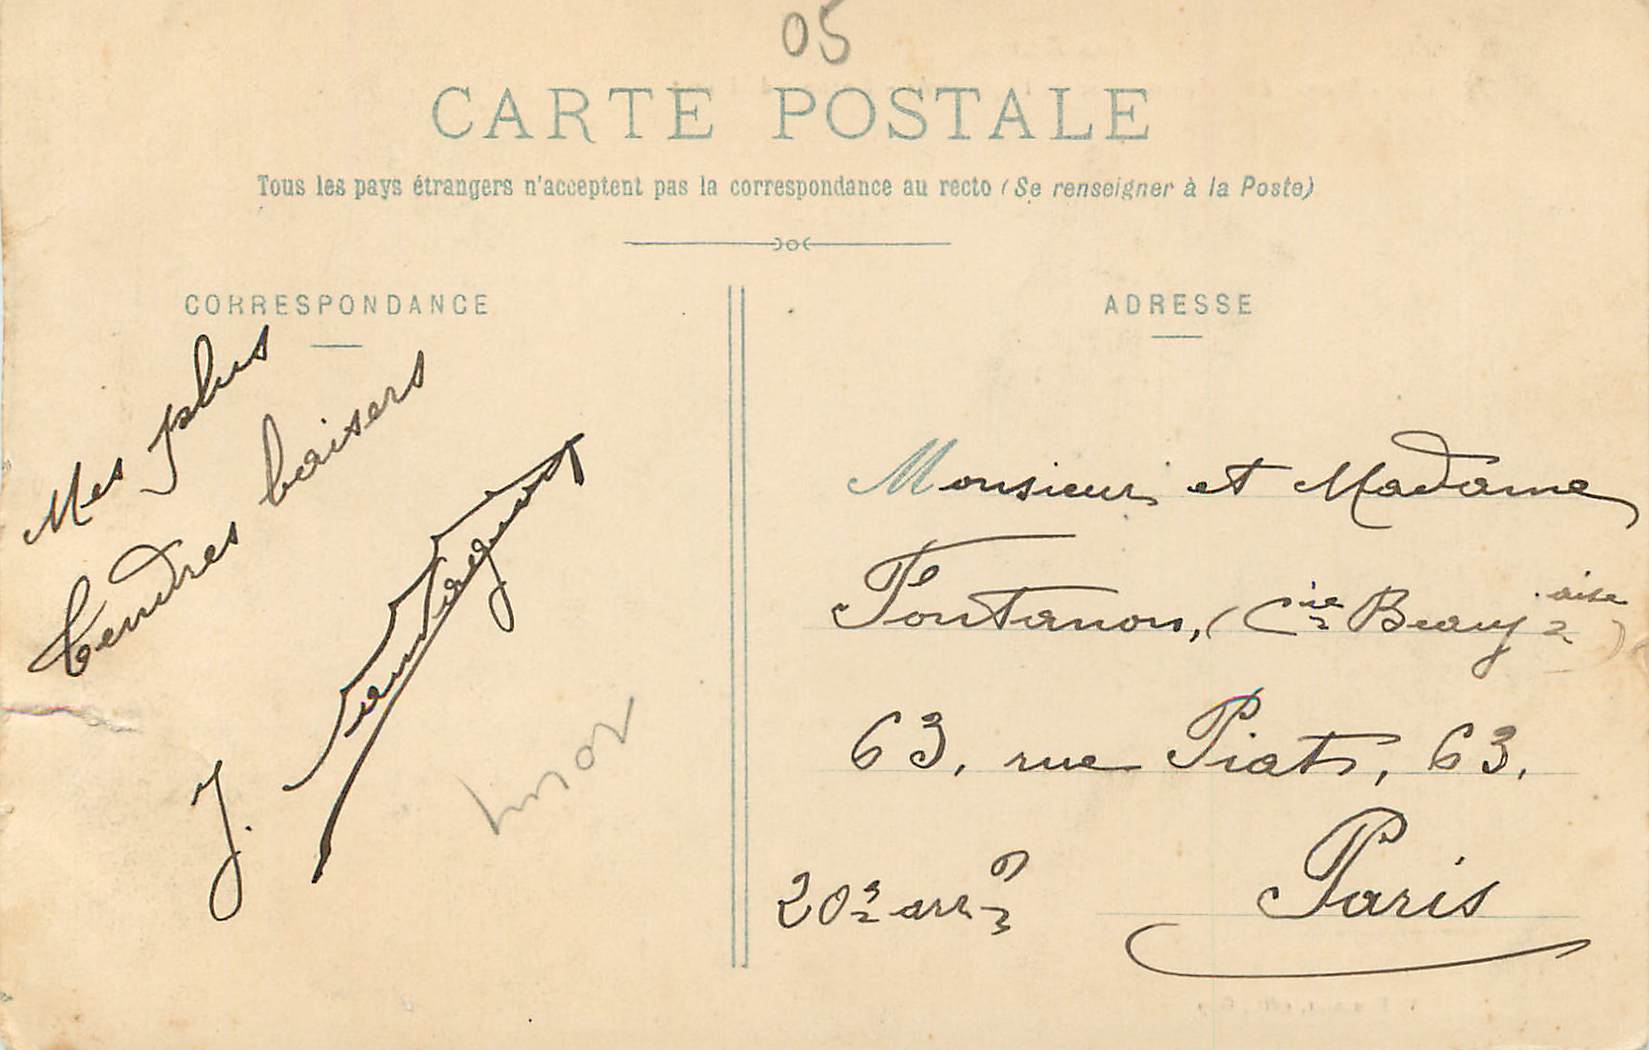 05
CARTE POSTALE
Tous les pays étrangers n'acceptent pas la correspondance au recto (Se renseigner à la Poste)
CORRESPONDANCE
Mes plus
tendres baisers
J.
ADRESSE
Monsieur et Madame
Fontanon, (Cie Beaujaise)
63, rue Piat, 63.
20e arrt
Paris